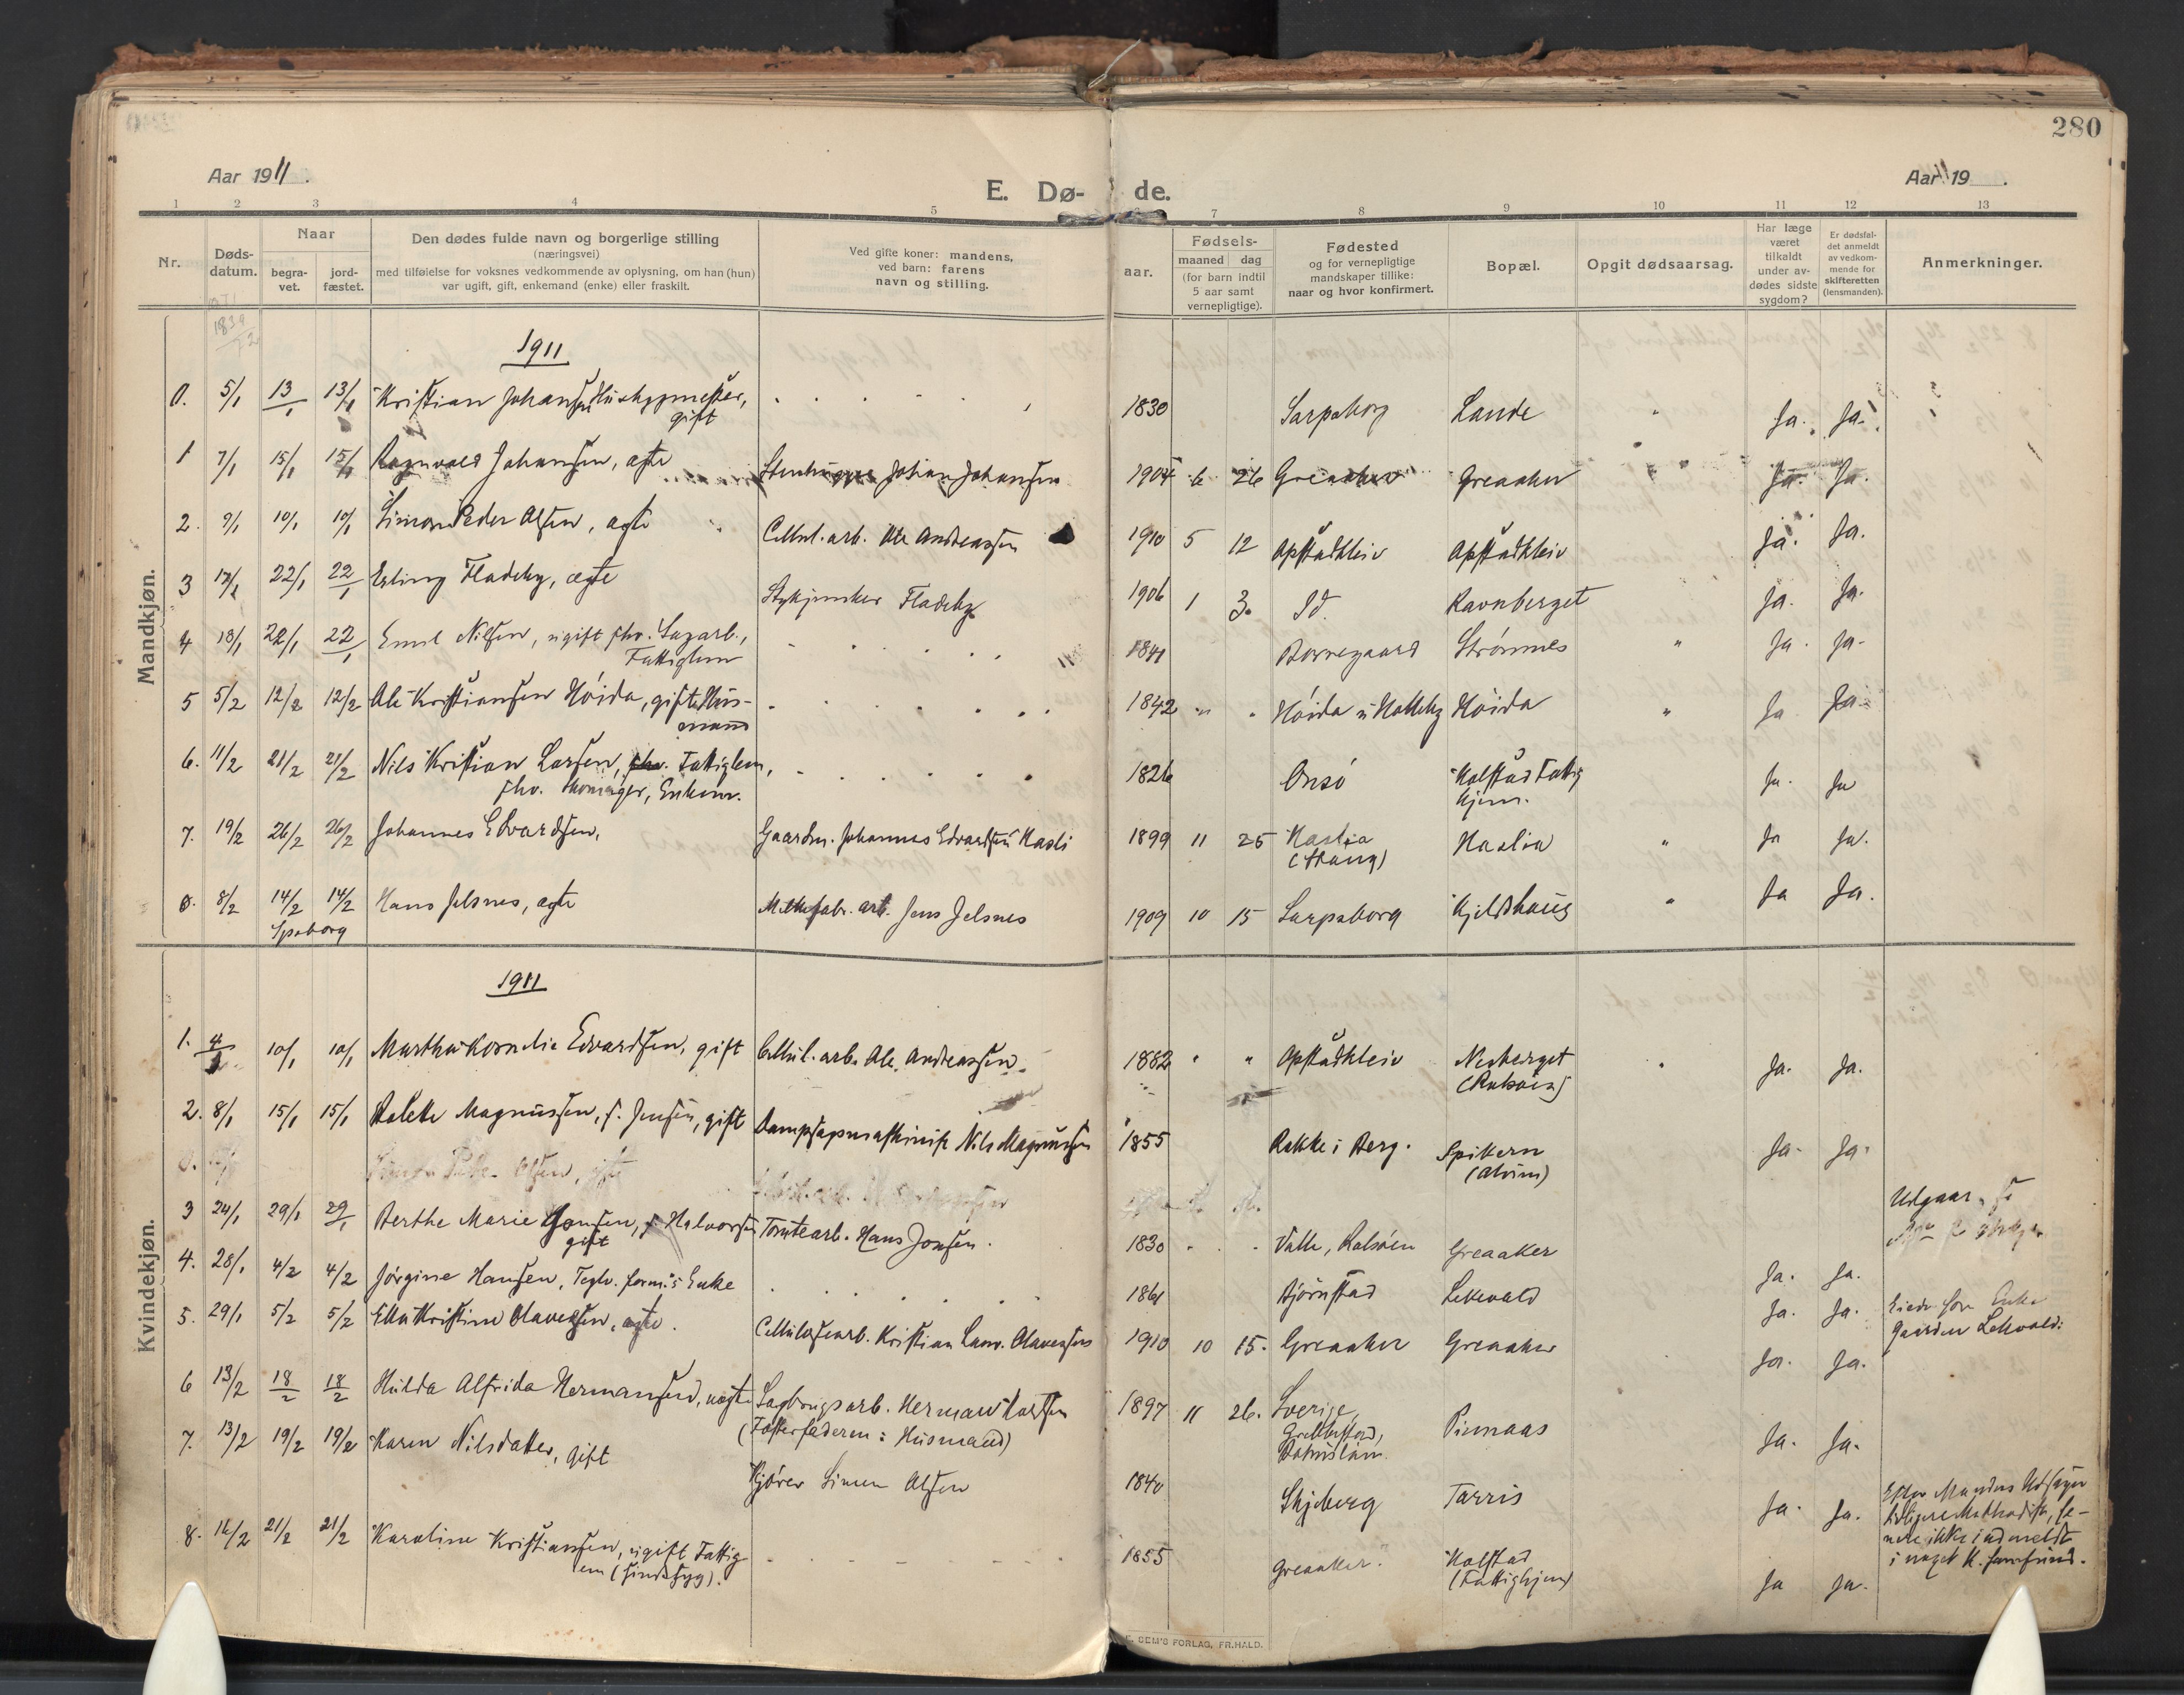 280
Aar 1911.
E. Dø- de.
Aar 11 19 .
1 2 3 4 5 6 7 8 9 10 11 12 13
Nr.
Døds-
datum.
Naar
begra-
vet.
jord-
fæstet.
Den dødes fulde navn og borgerlige stilling
(næringsvei)
med tilføielse for voksnes vedkommende av oplysning, om han (hun)
var ugift, gift, enkemand (enke) eller fraskilt.
Ved gifte koner: mandens,
ved barn: farens
navn og stilling.
aar.
Fødsels-
maaned dag
(for barn indtil
5 aar samt
vernepligtige).
Fødested
og for vernepligtige
mandskaper tillike:
naar og hvor konfirmert.
Bopæl.
Opgit dødsaarsag.
Har læge
været
tilkaldt
under av-
dødes sidste
sygdom?
Er dødsfal-
det anmeldt
av vedkom-
mende for
skifteretten
(lensmanden).
Anmerkninger.
Mandkjøn.
1911
0. 5/1 13/1 13/1 Kristian Johansen, gift 1830 Sarpsborg Lande " Ja. Ja.
1 7/1 15/1 15/1 Ragnvald Johansen, ægte Stenhugger Johan Johansen 1904 6 26 Greaaker Greaaker " Ja. Ja.
2. 9/1 10/1 10/1 Simon Peder Olsen, ægte Cellul.arb. Ole Andreassen 1910 5 12 Opstadkleiv Opstadkleiv Ja. Ja.
3 17/1 22/1 22/1 Erling Fladeby, ægte Stykjunker Fladeby 1906 1 3. Id. Ravnberget Ja. Ja.
4 18/1 22/1 22/1 Emil Nilsen, ugift fhv. Sagarb.,
Fattiglem 1841 Borregaard Strømnes " Ja. Ja.
5 5/2 12/2 12/2 Ole Kristiansen Höida, gift Hus-
mand 1842 " " Höida Höida " Ja Ja.
6. 11/2 21/2 21/2 Nils Kristian Larsen, fhv. Fattiglem,
fhv. Skomager, Enkem. 1826 Onsö Kalstad Fattig
hjem. Ja. Ja
7. 19/2 26/2 26/2 Johannes Edvardsen, Gaardm. Johannes Edvardsen Hasli 1899 11 25 Haslia
Haslia " Ja Ja.
0. 8/2 14/2 14/2 Hans Jelsnes, ægte arb. Jens Jelsnes 1909 10 15 Sarpsborg Kjeldshaug " Ja Ja.
Spsborg
Kvindekjøn.
1911
1. 4/1 10/1 10/1 Martha Kornelia Edvardsen, gift Cellul.arb. Ole Andreassen. 1882 " " Opstadkleiv Nesberget
Ja. Ja.
2. 8/1 15/1 15/1 Magnussen, f. Jensen, gift Dampsagsmaskinist Nils Magnussen 1855 Rakke i Berg. Spikern
(Alvim) Ja. Ja.
0. Simon Peder Olsen, ægte
Udgaar
3 24/1 29/1 29/1 Berthe Marie Jonsen, f. Halvorsen
gift Tomtearb. Hans Jonsen. 1830 " " Greaaker Ja. Ja.
4. 28/1 4/2 4/2 Jörgine Hansen, Enke 1861 Björnstad Lekevold Ja. Ja. Enke
Gaarden Lekevold.
5. 29/1 5/2 5/2 Ella Kristine Olavesen, ægte. Cellulosearb. Kristian Laur. Olavesen 1910 10 15. Greaaker Greaaker Ja. Ja.
6 13/2 18/2 18/2 Hulda Alfrida Hermansen, uægte Sagbrugsarb. Herman Karlsen
(Fosterfaderen: Husmand) 1897 11 26. Sverige,
Pinnaas Ja. Ja.
7. 13/2 19/2 19/2 Karen Nilsdatter, gift Kjörer Simen Olsen 1840 Skjeberg Tarris Ja. Ja. Efter Mandens Udsagn
tidligere Methodist, se-
nere ikke indmeldt
i noget K. samfund.
8. 16/2 21/2 21/2 Karoline Kristiansen, ugift Fattig
lem (sindssyg). 1855 Greaaker. Kalstad
(Fattighjem) Ja Ja.
SEM'S FORLAG, FR.HALD.